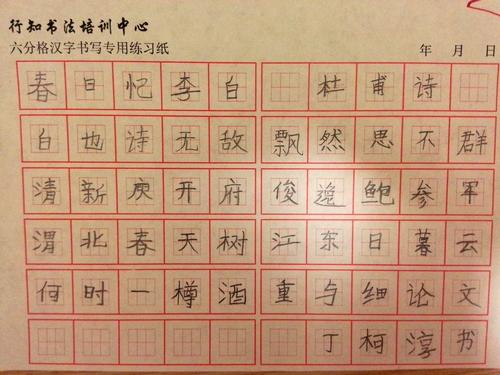 行知书法培训中心
六分格汉字书写专用练习纸 年 月 日
春日忆李白 杜甫诗
白也诗无敌 飘然思不群
清新庾开府 俊逸鲍参军
渭北春天树 江东日暮云
何时一樽酒 重与细论文
丁柯淳书